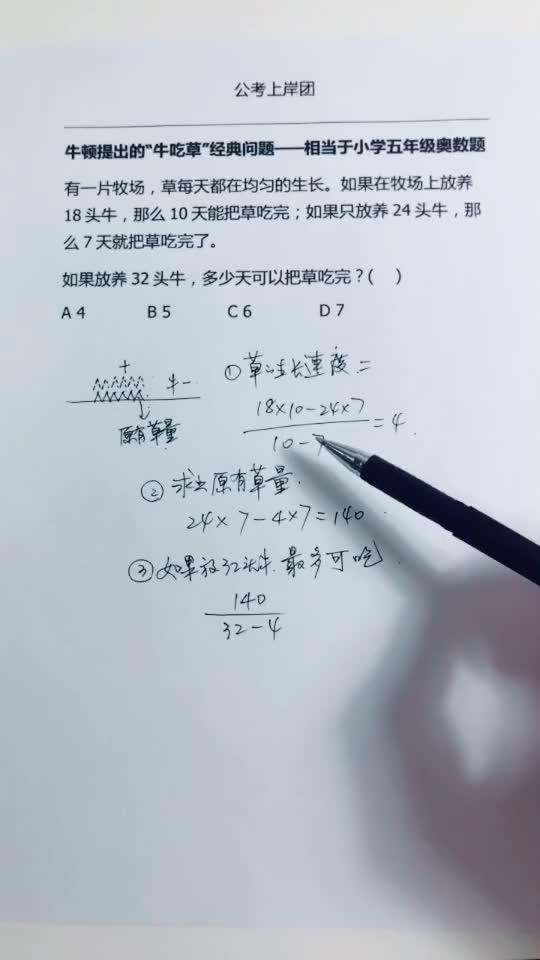 公考上岸团
牛顿提出的“牛吃草”经典问题——相当于小学五年级奥数题
有一片牧场，草每天都在均匀的生长。如果在牧场上放养
18 头牛，那么 10 天能把草吃完；如果只放养 24 头牛，那
么 7 天就把草吃完了。
如果放养 32 头牛，多少天可以把草吃完？( )
A 4 B 5 C 6 D 7
+ 牛-
原有草量
①草的生长速度=
18×10-24×7
10-7
=4
②求出原有草量.
24×7-4×7=140
③如果放32头牛.最多可吃
140
32-4